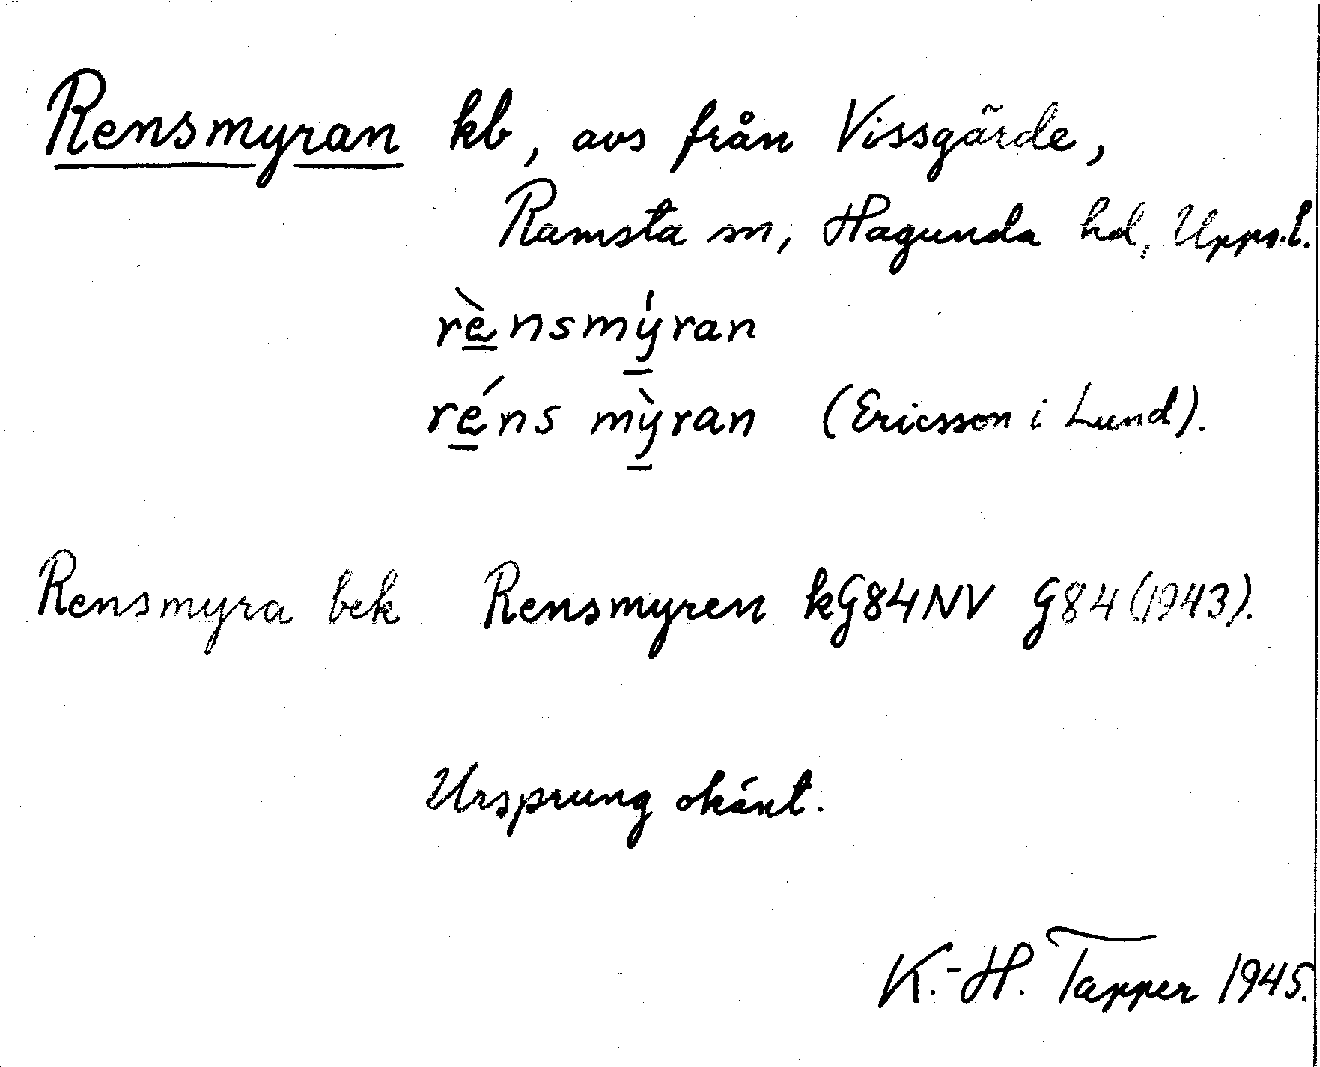 Rensmyran kb, avs från Vissgärde,
Ramsta sn, Hagunda hd, Upps.l.
rè̲nsmý̲ran
ré̲ns mỳ̲ran (Ericsson i Lund).
Rensmyra bek Rensmyren kG84NV G84(1943).
Ursprung okänt.
K.-H. Tapper 1945.